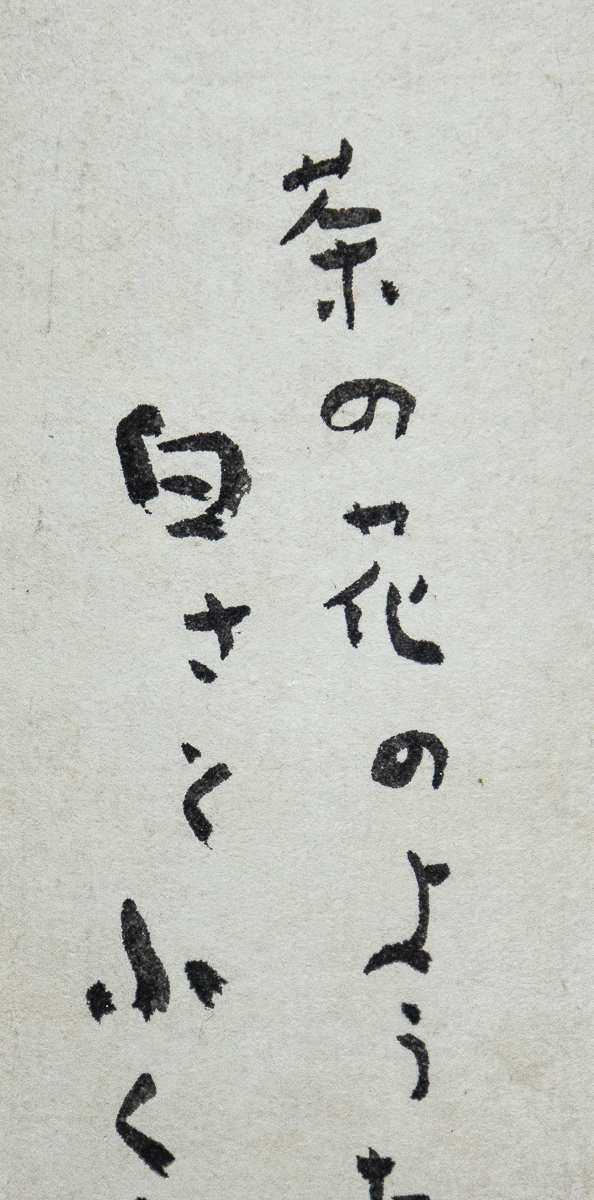 茶の花のよう
白さと小く